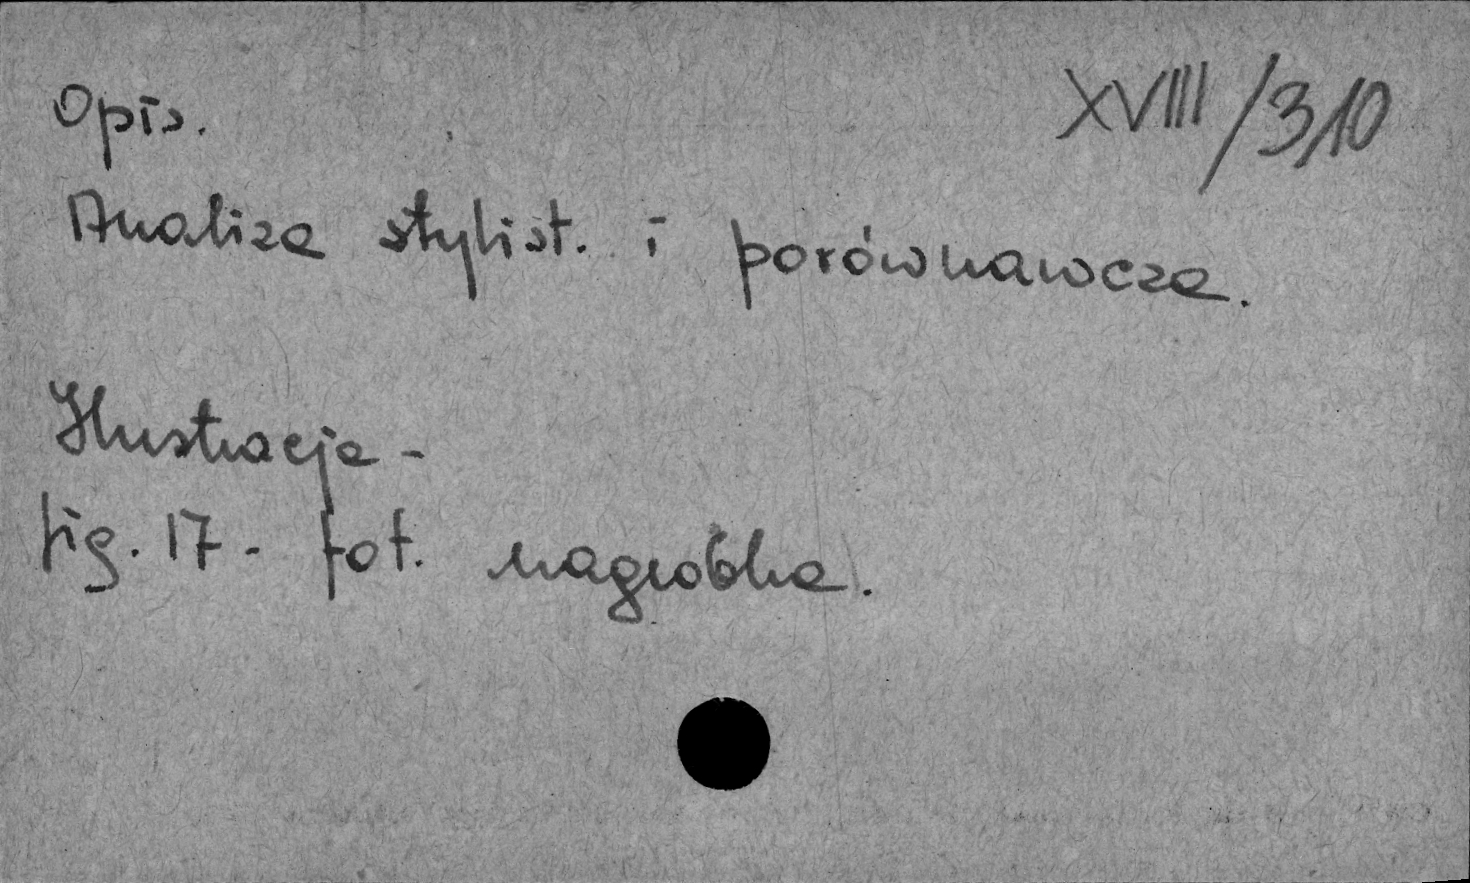 XVIII/310
Opis.
Analiza stylist. i porównawcza.
Ilustracja -
fig. 17 - fot. nagrobka.